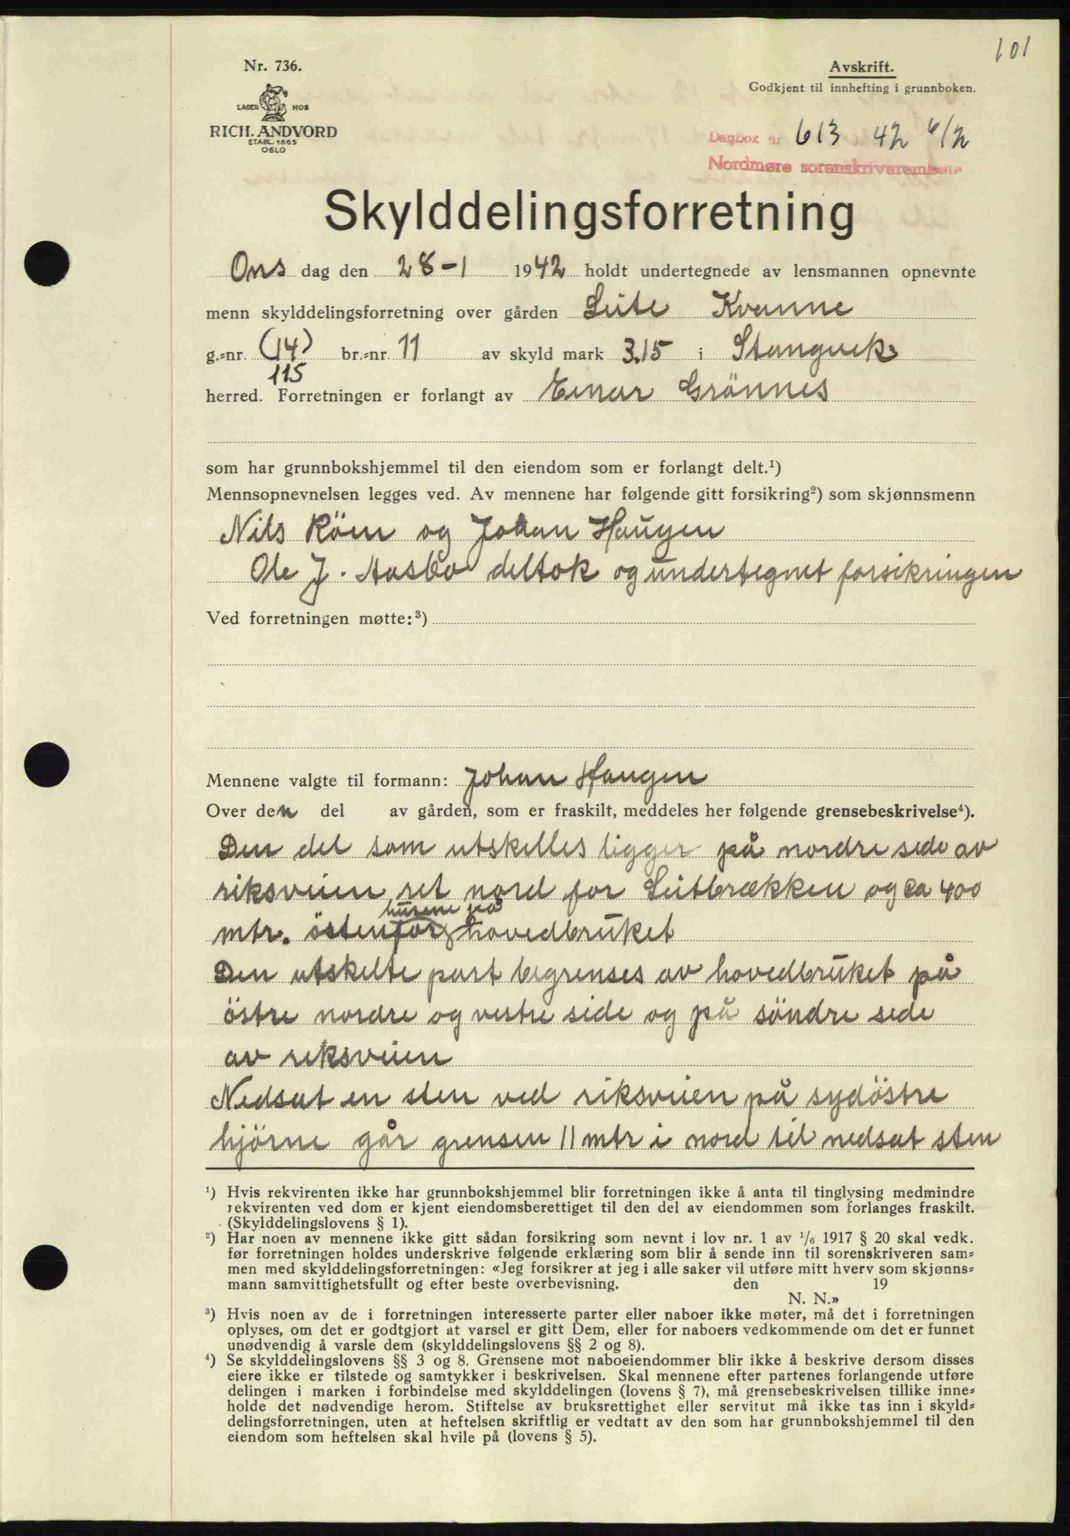 101
Nr. 736.
Avskrift.
Godkjent til innhefting i grunnboken.
LAGER HOS
RICH. ANDVORD
ETABL. 1865
OSLO
Dagbok nr 613 42 6/2
Nordmøre sorenskriverembete
Skylddelingsforretning
Ons dag den 28-1 1942 holdt undertegnede av lensmannen opnevnte
menn skylddelingsforretning over gården Leite Kvanne
g.-nr. (14) br.-nr. 11 av skyld mark 3.15 i Stangvik
115
herred. Forretningen er forlangt av Einar Grönnes
som har grunnbokshjemmel til den eiendom som er forlangt delt.¹)
Mennsopnevnelsen legges ved. Av mennene har følgende gitt forsikring²) som skjønnsmenn
Nils Röen og Johan Haugen
Ole J. Aasbø deltok og undertegnet forsikringen
Ved forretningen møtte:³)
Mennene valgte til formann: Johan Haugen
Over den del av gården, som er fraskilt, meddeles her følgende grensebeskrivelse⁴).
Den del som utskilles ligger på nordre side av
riksveien ret nord for Leitbrækken og ca 400
husene på
mtr. östenfor hovedbruket
Den utskilte part begrenses av hovedbruket på
östre nordre og vestre side og på söndre side
av riksveien
Nedsat en sten ved riksveien på sydöstre
hjörne går grensen 11 mtr i nord til nedsat sten
¹) Hvis rekvirenten ikke har grunnbokshjemmel blir forretningen ikke å anta til tinglysing medmindre
rekvirenten ved dom er kjent eiendomsberettiget til den del av eiendommen som forlanges fraskilt.
(Skylddelingslovens § 1).
²) Har noen av mennene ikke gitt sådan forsikring som nevnt i lov nr. 1 av 1/6 1917 § 20 skal vedk.
før forretningen holdes underskrive følgende erklæring som blir å sende inn til sorenskriveren sam-
men med skylddelingsforretningen: «Jeg forsikrer at jeg i alle saker vil utføre mitt hverv som skjønns-
mann samvittighetsfullt og efter beste overbevisning. den 19
N. N.»
³) Hvis noen av de i forretningen interesserte parter eller naboer ikke møter, må det i forretningen
oplyses, om det er godtgjort at varsel er gitt Dem, eller for naboers vedkommende om det er funnet
unødvendig å varsle dem (skylddelingslovens §§ 2 og 8).
⁴) Se skylddelingslovens §§ 3 og 8. Grensene mot naboeiendommer blir ikke å beskrive dersom disses
eiere ikke er tilstede og samtykker i beskrivelsen. Skal mennene efter partenes forlangende utføre
delingen i marken i forbindelse med skylddelingen (lovens § 7), må grensebeskrivelsen tillike inne-
holde det nødvendige herom. Stiftelse av bruksrettighet eller servitut må ikke tas inn i skyld-
delingsforretningen, uten at heftelsen skriftlig er vedtatt av den som har grunnbokshjemmel til den
eiendom som heftelsen skal hvile på (lovens § 5).